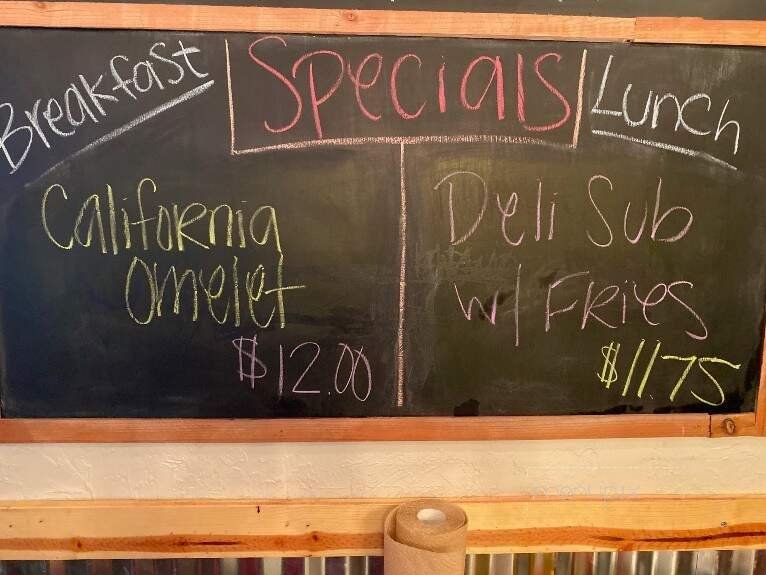 Specials
Breakfast
California
Omelet
$12.00
Lunch
Deli Sub
w/ Fries
$11.75